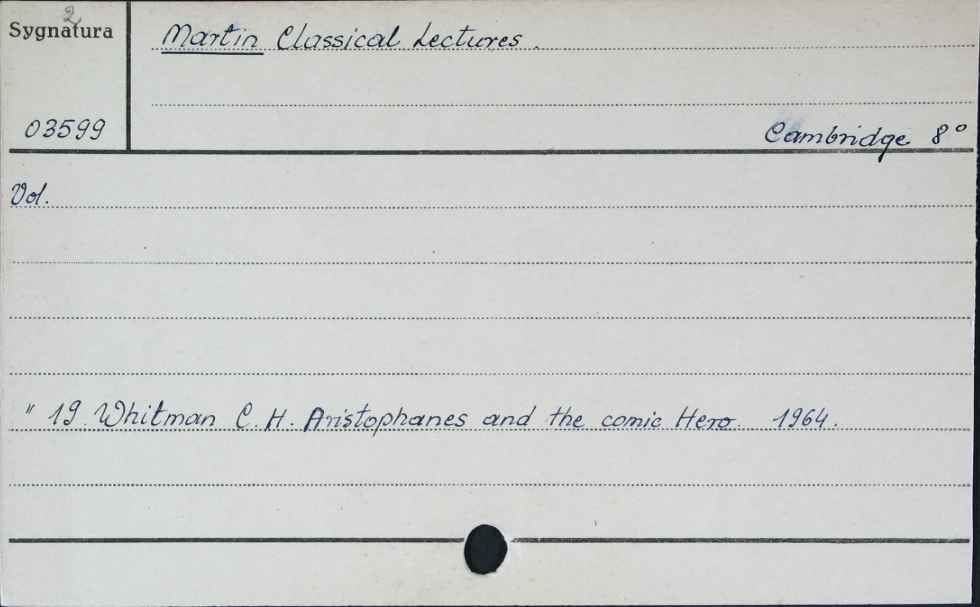 2
Sygnatura
Martin Classical Lectures.
03599
Cambridge 8°
Vol.
" 19. Whitman C. H. Aristophanes and the comic Hero. 1964.